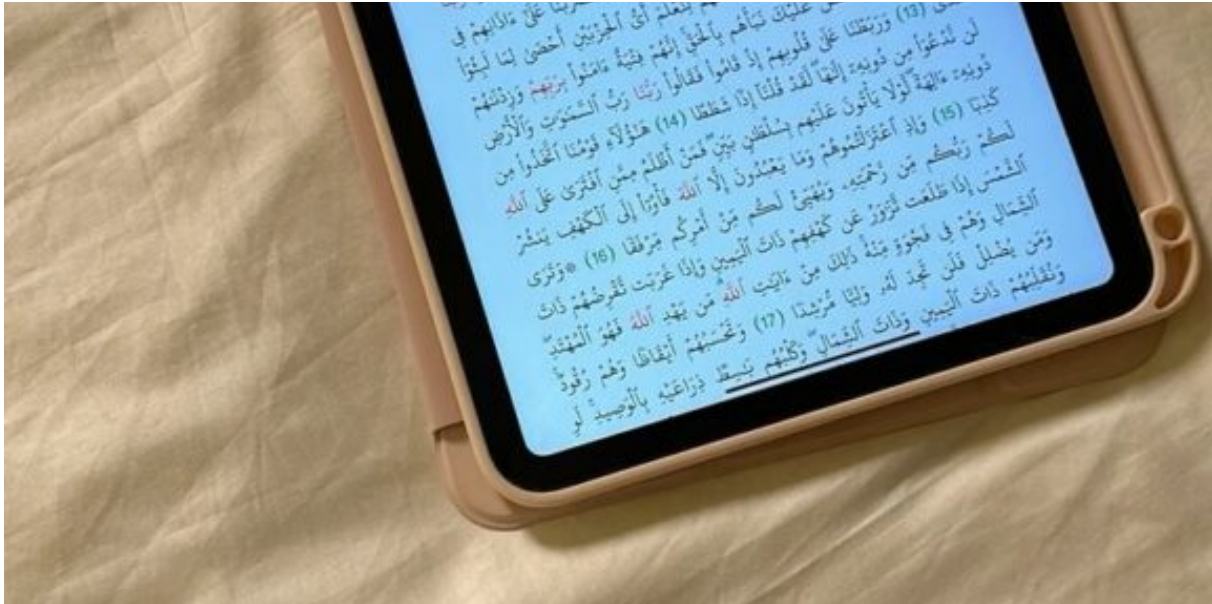 عَلَىٰٓ ءَاذَانِهِمْ فِي
لِنَعْلَمَ أَيُّ ٱلْحِزْبَيْنِ أَحْصَىٰ لِمَا لَبِثُوٓا۟
عَلَيْكَ نَبَأَهُم بِٱلْحَقِّ إِنَّهُمْ فِتْيَةٌ ءَامَنُوا۟ بِرَبِّهِمْ وَزِدْنَٰهُمْ
(13) وَرَبَطْنَا عَلَىٰ قُلُوبِهِمْ إِذْ قَامُوا۟ فَقَالُوا۟ رَبُّنَا رَبُّ ٱلسَّمَٰوَٰتِ وَٱلْأَرْضِ
لَن نَّدْعُوَا۟ مِن دُونِهِۦٓ إِلَٰهًا لَّقَدْ قُلْنَآ إِذًا شَطَطًا (14) هَٰٓؤُلَآءِ قَوْمُنَا ٱتَّخَذُوا۟ مِن
دُونِهِۦٓ ءَالِهَةً لَّوْلَا يَأْتُونَ عَلَيْهِم بِسُلْطَٰنٍۭ بَيِّنٍ فَمَنْ أَظْلَمُ مِمَّنِ ٱفْتَرَىٰ عَلَى ٱللَّهِ
كَذِبًا (15) وَإِذِ ٱعْتَزَلْتُمُوهُمْ وَمَا يَعْبُدُونَ إِلَّا ٱللَّهَ فَأْوُۥٓا۟ إِلَى ٱلْكَهْفِ يَنشُرْ
لَكُمْ رَبُّكُم مِّن رَّحْمَتِهِۦ وَيُهَيِّئْ لَكُم مِّنْ أَمْرِكُم مِّرْفَقًا (16) ۞ وَتَرَى
ٱلشَّمْسَ إِذَا طَلَعَت تَّزَٰوَرُ عَن كَهْفِهِمْ ذَاتَ ٱلْيَمِينِ وَإِذَا غَرَبَت تَّقْرِضُهُمْ ذَاتَ
ٱلشِّمَالِ وَهُمْ فِي فَجْوَةٍ مِّنْهُ ذَٰلِكَ مِنْ ءَايَٰتِ ٱللَّهِ مَن يَهْدِ ٱللَّهُ فَهُوَ ٱلْمُهْتَدِ
وَمَن يُضْلِلْ فَلَن تَجِدَ لَهُۥ وَلِيًّا مُّرْشِدًا (17) وَتَحْسَبُهُمْ أَيْقَاظًا وَهُمْ رُقُودٌ
وَنُقَلِّبُهُمْ ذَاتَ ٱلْيَمِينِ وَذَاتَ ٱلشِّمَالِ وَكَلْبُهُم بَٰسِطٌ ذِرَاعَيْهِ بِٱلْوَصِيدِ لَوِ